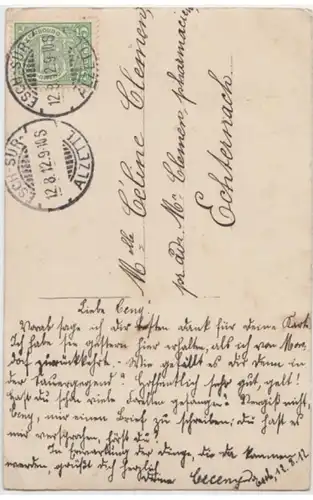 ESCH-SUR-ALZETTE
12.8.12.9-10S
ESCH-SUR-ALZETTE
12.8.12.9-10S
Mlle Céline Clemen,
pr. adr. Mr Clemen, pharmacien
Echternach
Liebe Ceny!
Vorab sage ich dir besten Dank für deine Karte
Ich habe sie gestern hier erhalten, als ich von
zurückkehrt. - Wie gefällt es dir denn in
der Sauergegend? Hoffentlich sehr gut, gelt!
Hast du schon viele gefangen? Vergiß nicht,
Ceny, mir einen Brief zu schreiben; du hast es
mir versprochen, hörst du?
In Erwartung der Dinge, die da kommen
werden, grüßt dich herzlich
Deine
Esch, 12.8.12